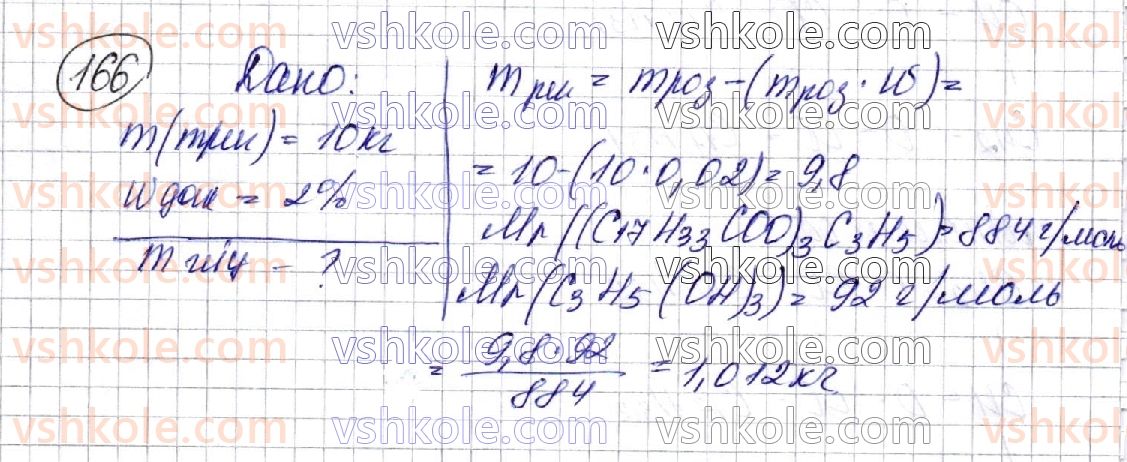 166
Дано:
m(трен) = 10кг
w дом = 2%
m гліц - ?
m рен = mроз-(mроз·W)=
= 10-(10·0,02)= 9,8
Mr((C17H33COO)3C3H5)= 884 г/моль
Mr(C3H5(OH)3)= 92 г/моль
= 9,8·92 / 884 = 1,012кг
vshkole.com